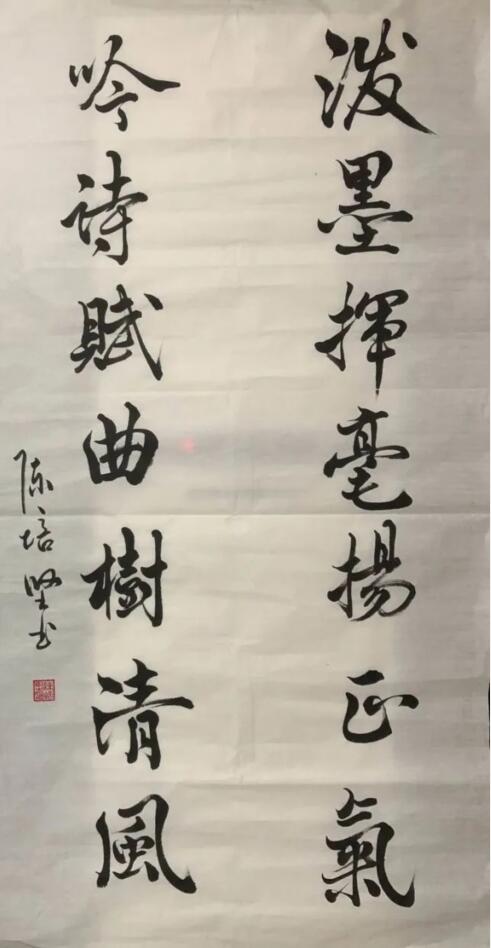 泼墨揮毫揚正氣
吟诗賦曲樹清風
陈培坚书